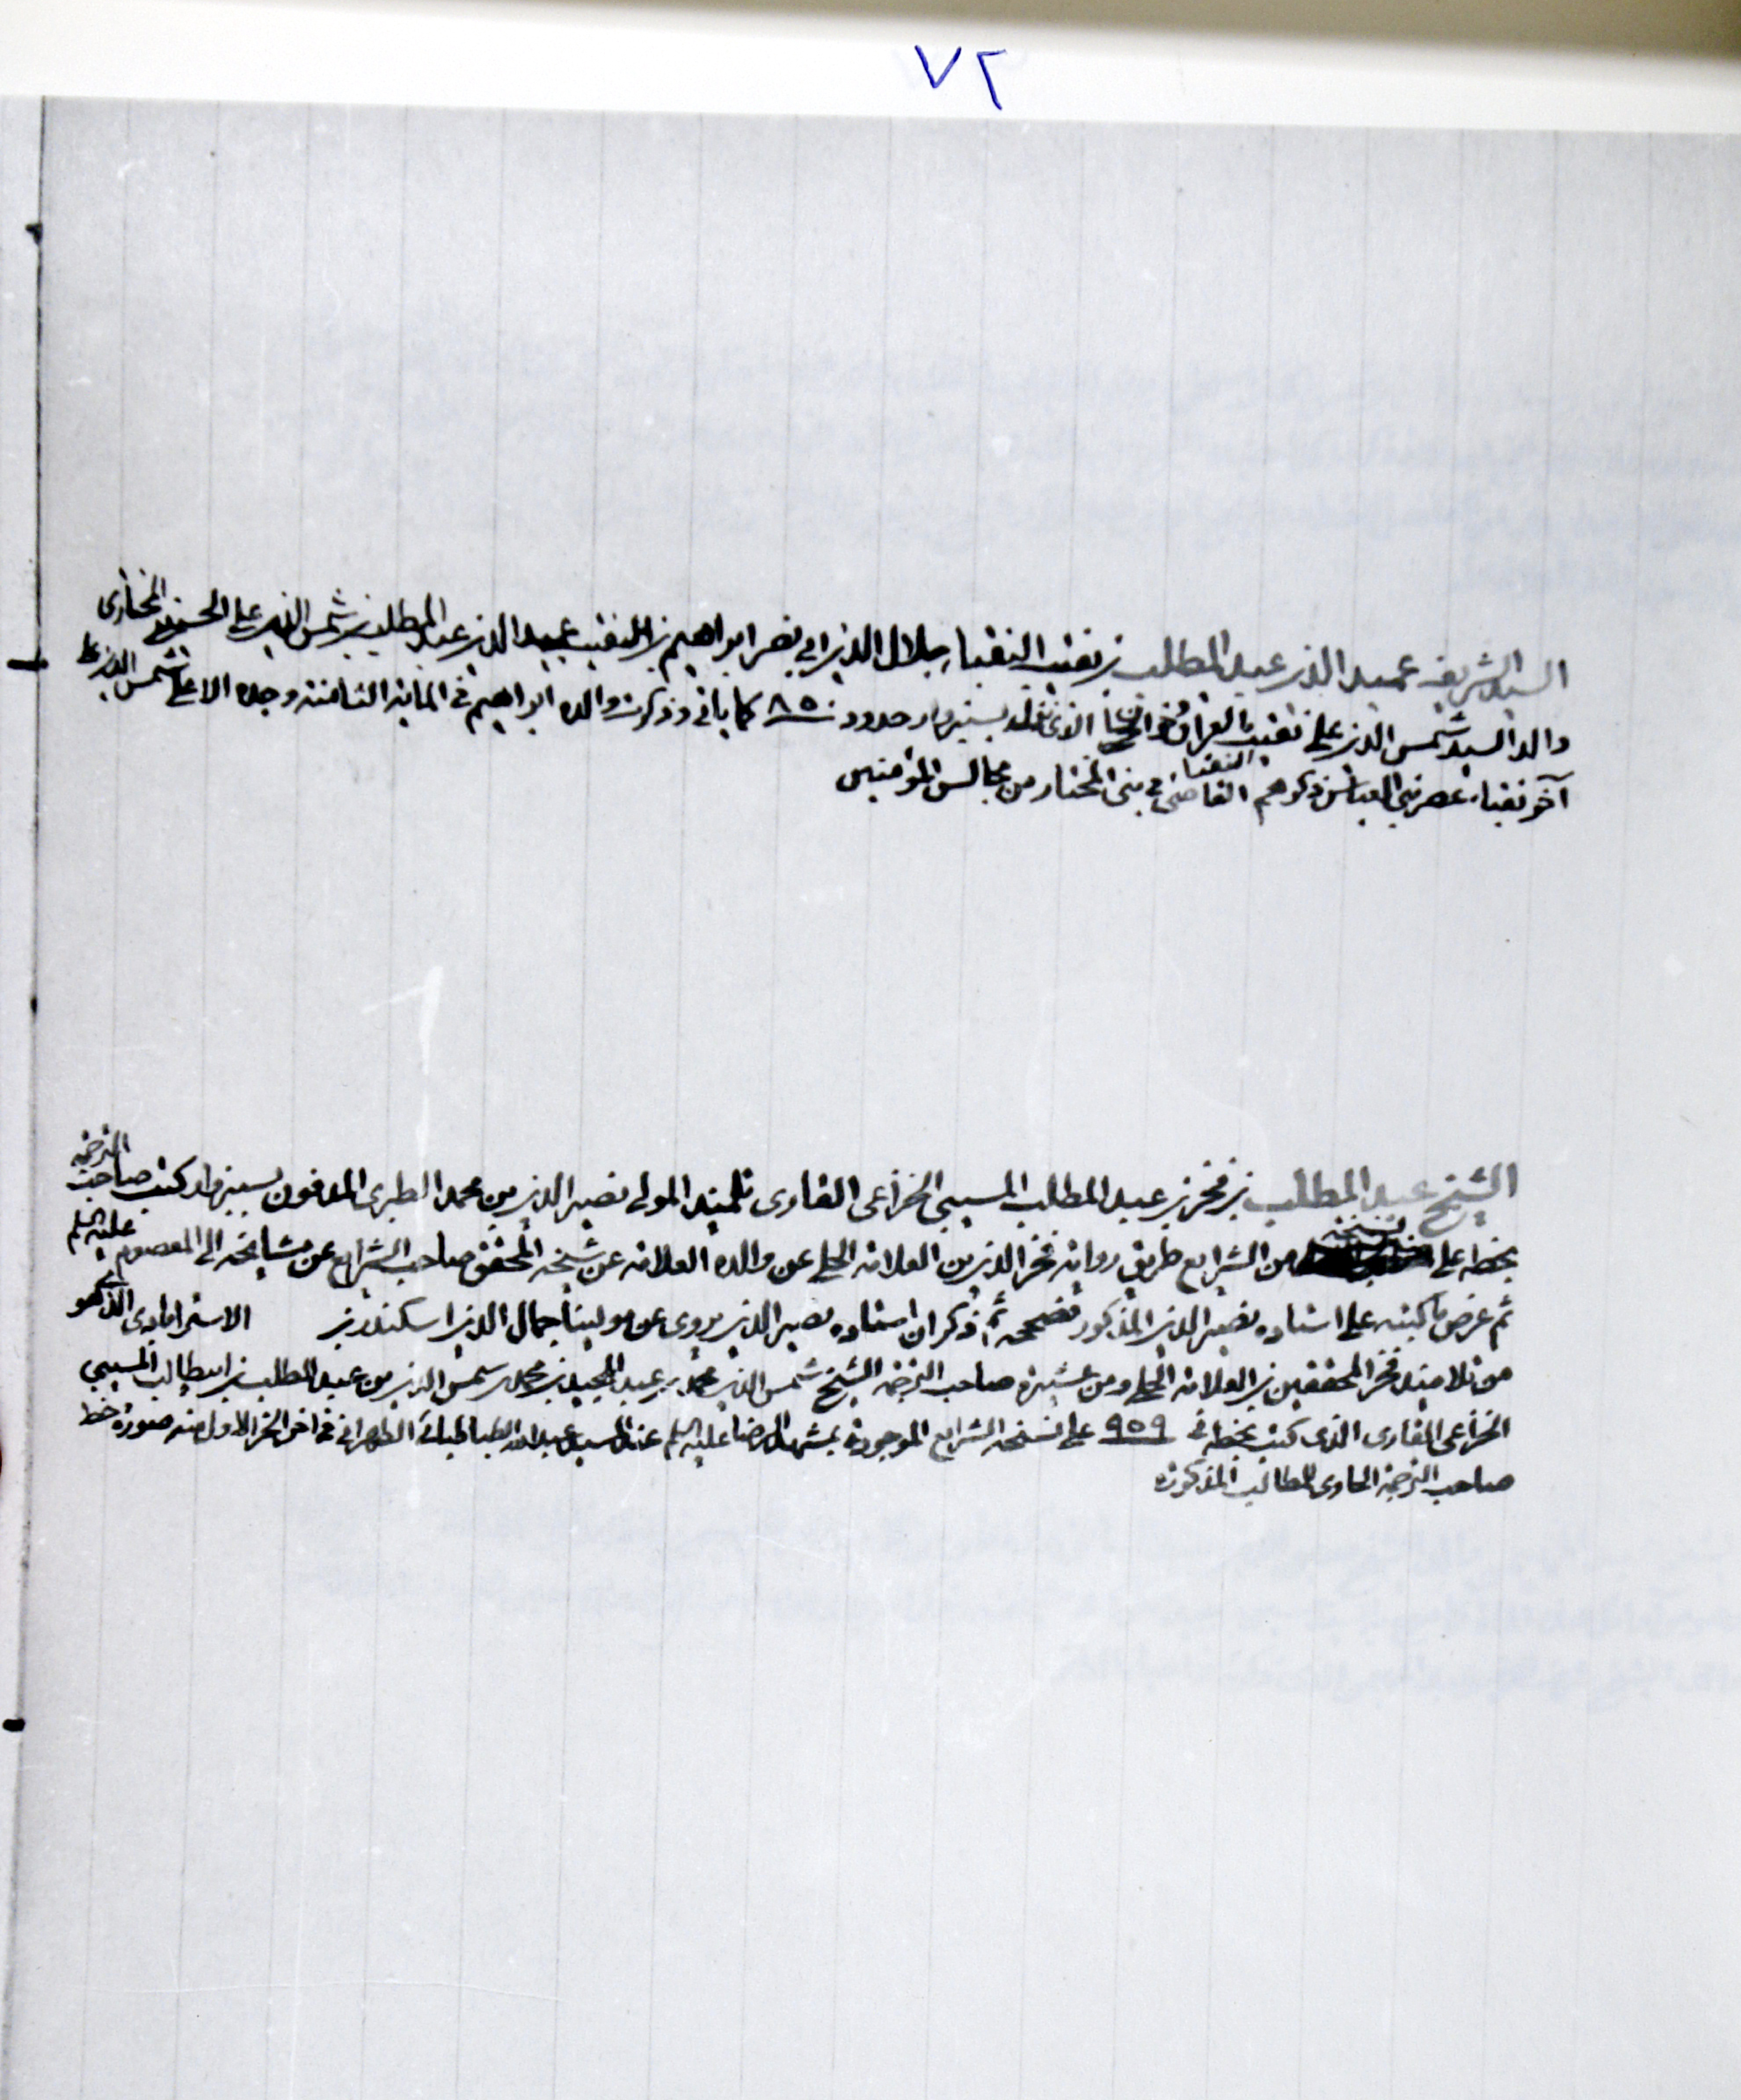 ٧٢
السيد الشريف عميد الدين عبد المطلب بن نقيب النقباء جلال الدين ابي نصر ابراهيم بن النقيب عميد الدين عبد المطلب بن شمس الدين علي الحسيني المختاري
والد السيد شمس الدين علي نقيب العراق وخراسان الذي نقله بسبزوار حدود ٨٥٠ كما ياتي وذكرت والده ابراهيم في الماية الثامنة وجده الاعلى شمس الدين علي
آخر نقباء عصر بني العباس ذكرهم القاضي في بني المختار النقباء من مجالس المؤمنين
الشيخ عبد المطلب بن فخر بن عبد المطلب المسيبي الخزاعي الغاروي تلميذ المولى نصير الدين بن محمد الطبري المدفون بسبزوار كتب صاحب الترجمة
بخطه على نسخة من الشرايع طريق رواية فخر الدين بن العلامة الحلي عن والده العلامة عن شيخه المحقق صاحب الشرايع عن مشايخه الى المعصوم عليه السلم
ثم عرض ما كتبه على استاده نصير الدين المذكور فصححه ثم ذكر ان استاده نصير الدين يروي عن مولينا جمال الدين اسكندر بن الاسترابادي الذي هو
من تلاميذ فخر المحققين بن العلامة الحلي ومن عشيرة صاحب الترجمة الشيخ شمس الدين محمد بن عبد المجيد بن محمد شمس الدين بن عبد المطلب بن ابيطالب المسيبي
الخزاعي الغاروي الذي كتب بخطه في ٩٥٩ على نسخة الشرايع الموجودة بمشهد الرضا عليه السلم عند السيد عبد الله الطباطبائي الطهراني في اخر الجزء الاول منه صورة خط
صاحب الترجمة الحاوي للمطالب المذكورة